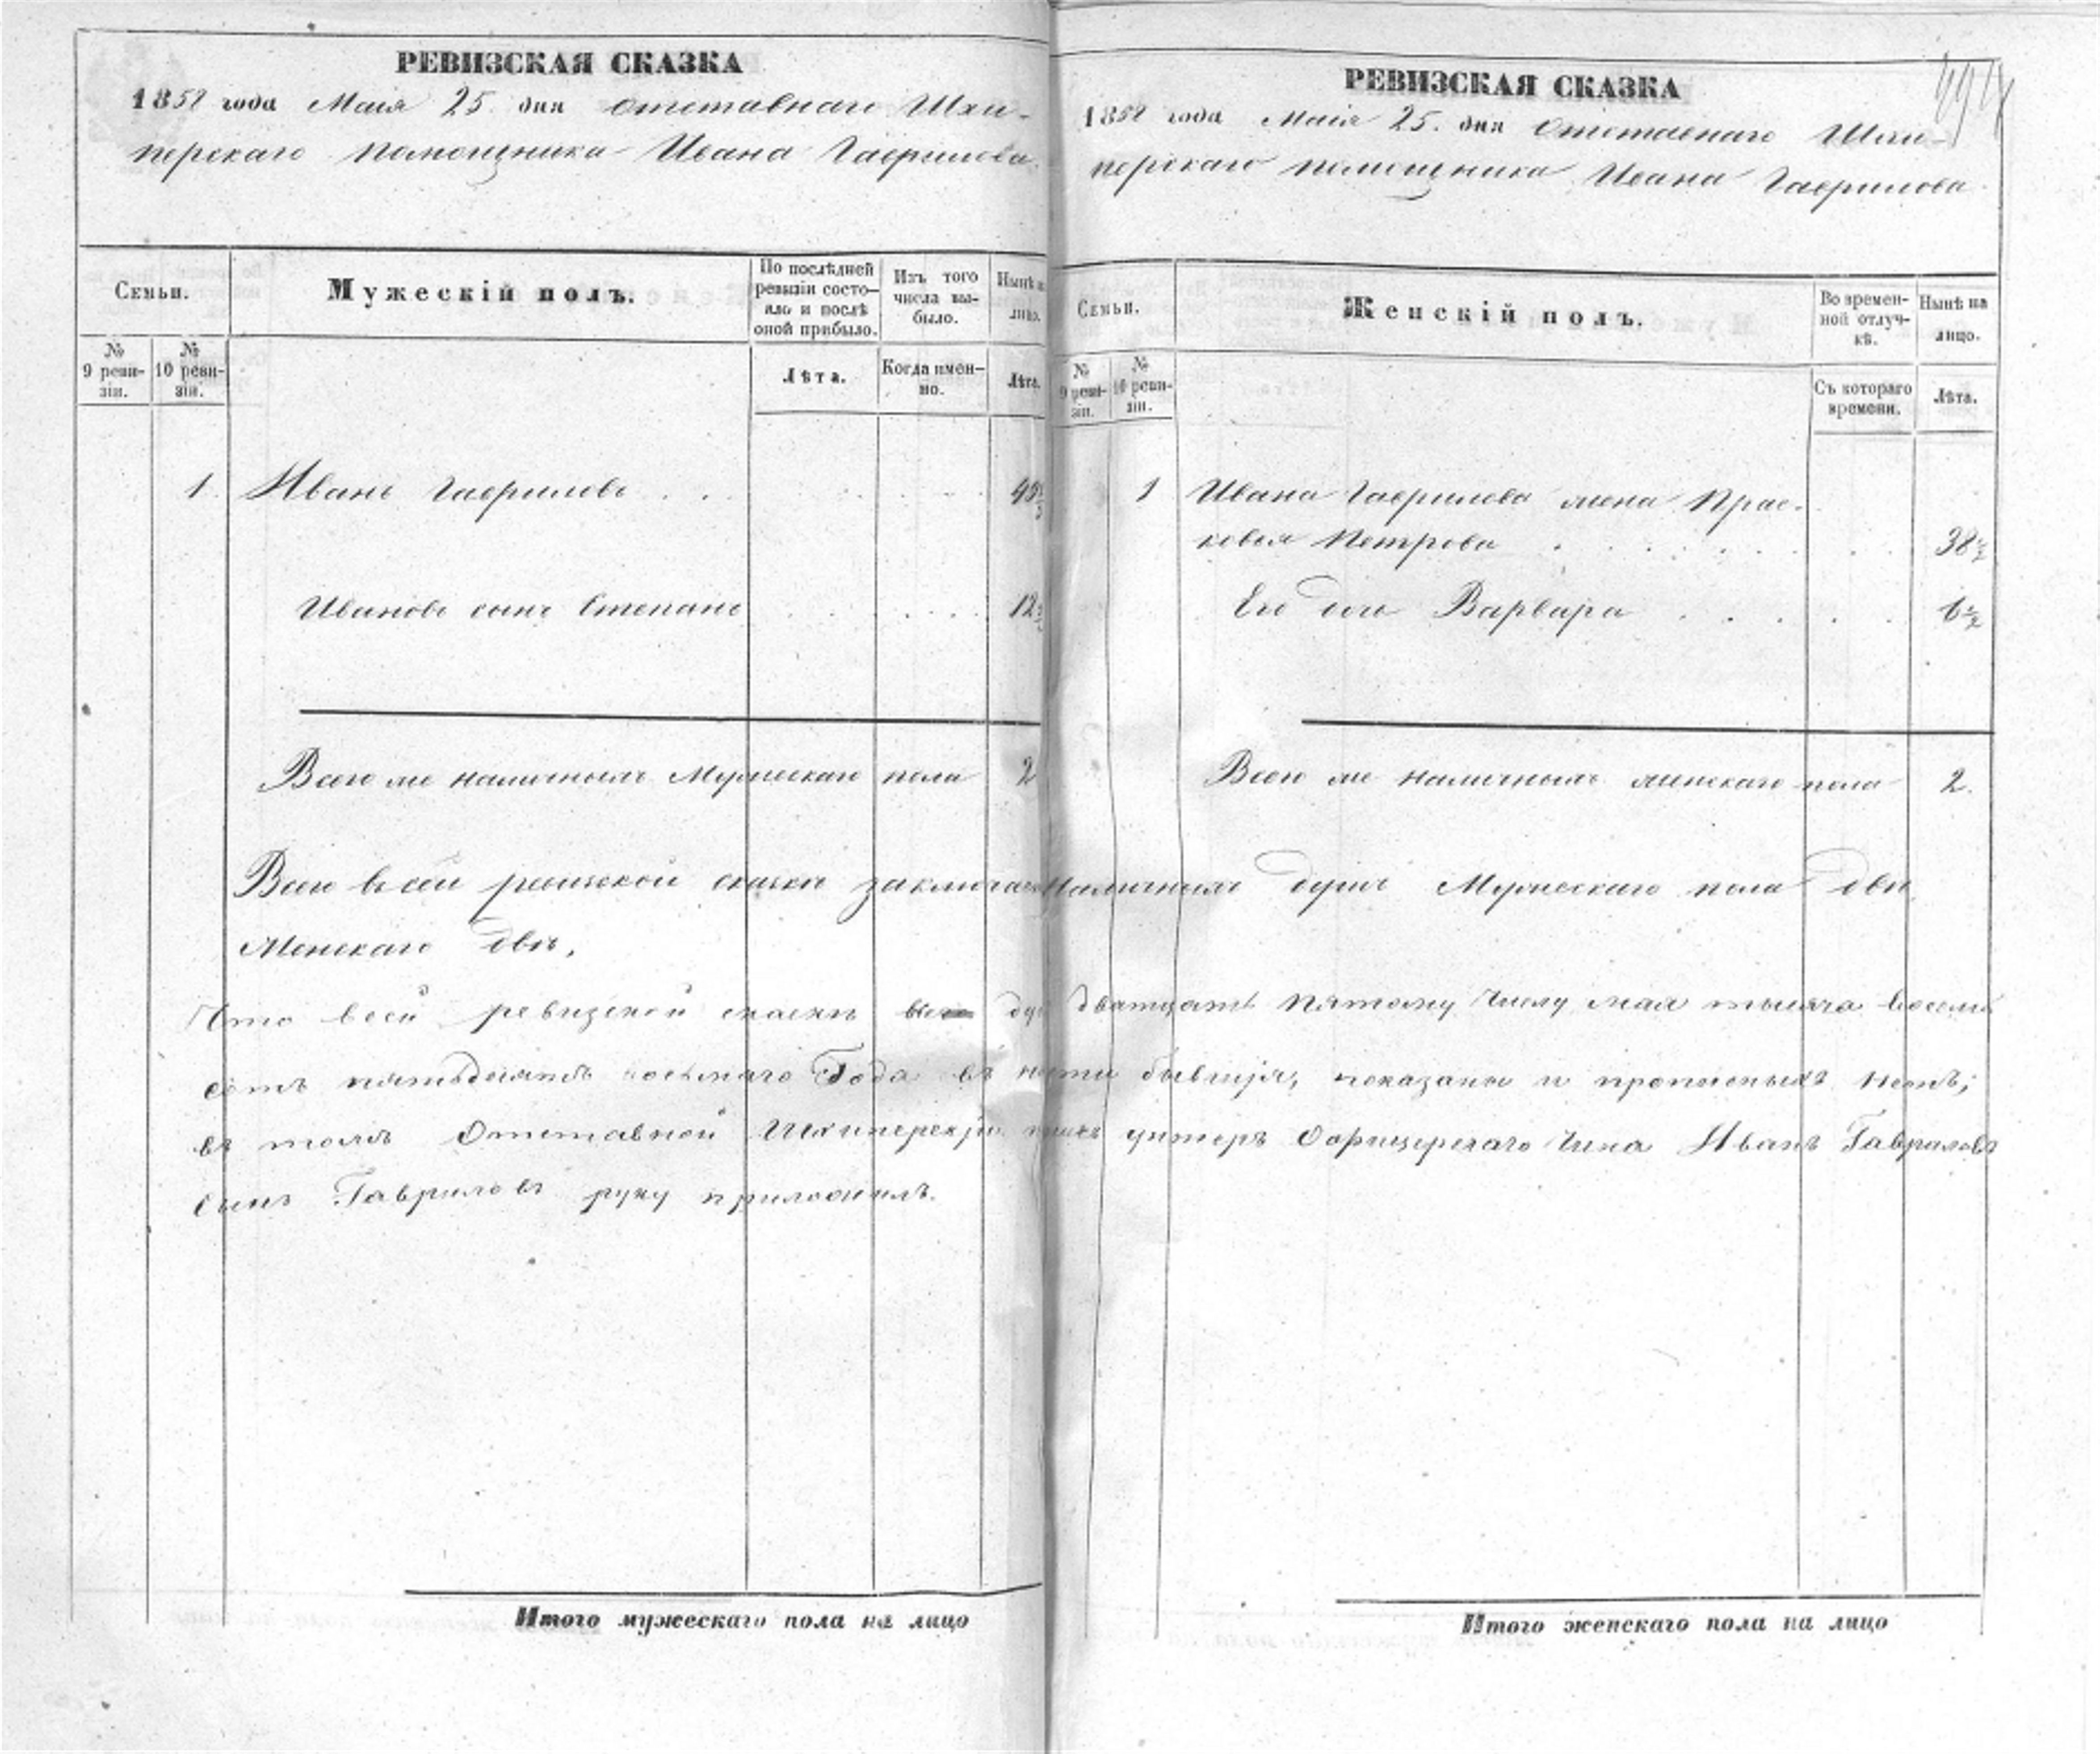 РЕВИЗСКАЯ СКАЗКА
1858 года Маия 25. дня отставнаго Шки-
перскаго помощника Ивана Гаврилова.
Семьи.
Мужескій полъ.
По послѣдней ревизіи состо-
яло и послѣ оной прибыло.
Изъ того числа вы-
было.
Нынѣ на лицо.
№ 9 реви-
зіи.
№ 10 реви-
зіи.
Лѣта.
Когда имен-
но.
Лѣта.
1. Иванъ Гавриловъ . .
Ивановъ сынъ Степанъ 12½
Всего же наличныхъ Мужескаго пола 2
РЕВИЗСКАЯ СКАЗКА
1858 года Маия 25. дня Отставнаго Шки-
перскаго помощника Ивана Гаврилова.
Семьи.
Женскій полъ.
Во времен-
ной отлуч-
кѣ.
Нынѣ на лицо.
№ 9 реви-
зіи.
№ 10 реви-
зіи.
Съ котораго времени.
Лѣта.
1 Ивана Гаврилова жена Прас-
ковья Петрова 38½
Его дочь Варвара 6½
Всего же наличныхъ женскаго пола 2.
Всего в сей ревизской сказкѣ наличныхъ душъ Мужескаго пола двѣ
Женскаго двѣ.
Что всей ревизской сказкѣ дватцать пятому числу мая тысяча восемь
сотъ пятьдесятъ восьмаго Года въ бывшия, показаны и прописныхъ нетъ;
въ томъ Отставной Шхиперскій унтеръ Оофицерскаго Чина Иванъ Гавриловъ
сынъ Гавриловъ руку приложилъ.
Итого мужескаго пола на лицо
Итого женскаго пола на лицо